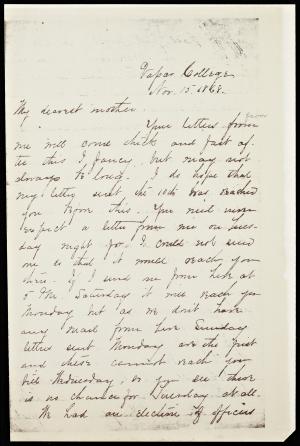 Vassar College
Nov. 15. 1868.
My dearest mother.
Your letters from
me will come thick and fast af-
ter this I fancy, but may not
always be long. I do hope that
my letter sent the 10th has reached
you before this. You need never
expect a letter from me on Tues-
day night for I could not send
one so that it would reach you
then. If I send one from here at
5 P.M. Saturday it will reach you
Monday but as we don't have
any mail from here Sunday
letters sent Monday are the first
and these cannot reach you
till Wednesday, so you see there
is no chance for Tuesday at all.
We had an election of officers